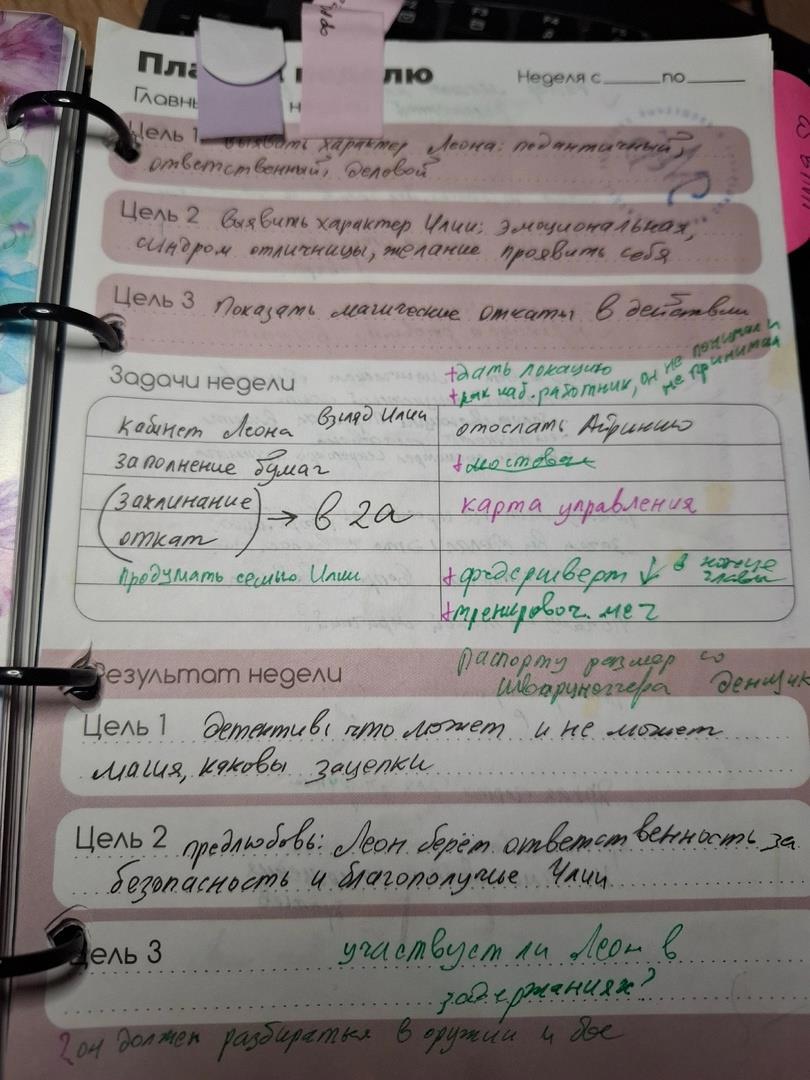 Пла н лю
Неделя с ______ по ______
Главны н
Цель 1 выявить характер Леона: педантичный,
ответственный, деловой
Цель 2 Выявить характер Илии: эмоциональная,
синдром отличницы, желание проявить себя
Цель 3 Показать магические откаты в действии
Задачи недели
+дать локацию
+как каб. работник, он не понимал и
не принимал
кабинет Леона взгляд Илии
отослать
заполнение бумаг
+мостовая
(заклинание откат) → в 2а
карта управления
продумать семью Илии
+ ↓ в конце главы
+тренировоч. меч
Результат недели
размер со
Шварценеггера
Цель 1 Детектив: что может и не может
магия, каковы зацепки
Цель 2 предлюбовь: Леон берёт ответственность за
безопасность и благополучие Илии
Цель 3 участвует ли Леон в
задержаниях?
он должен разбираться в оружии и бое